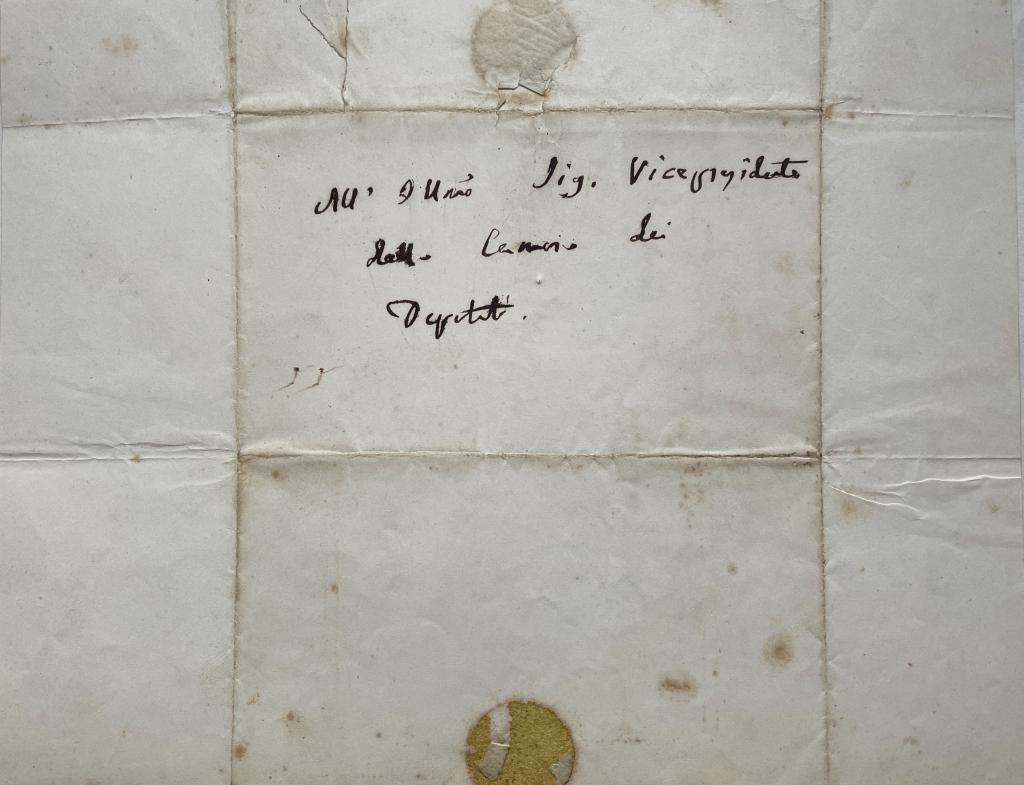 All' Illmo Sig. Vicepresidente
della Camera dei
Deputati.